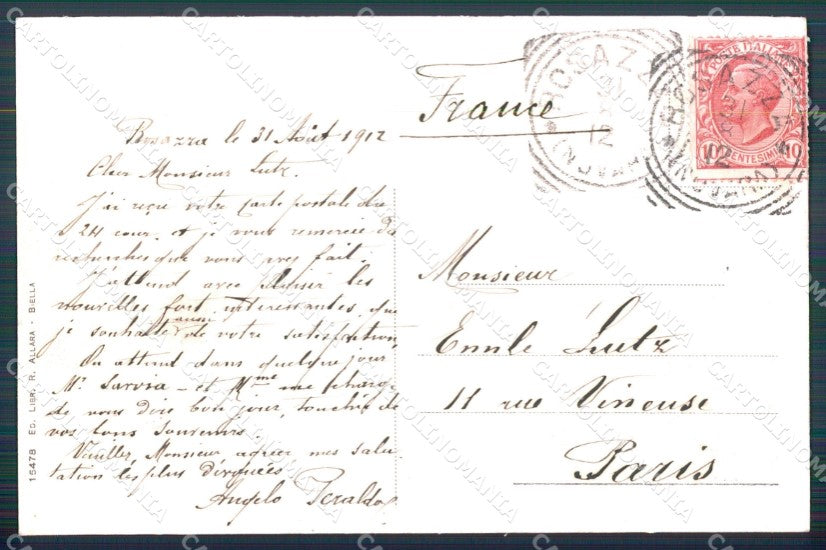 France
Rosazza le 31 Août 1912
Cher Monsieur Lutz.
J'ai reçu votre carte postale du
24 cour. et je vous remercie des
recherches que vous avez fait.
J'attend avec plaisir les
nouvelles fort intéressantes, que
je souhaite aussi de votre satisfaction
On attend dans quelque jour
Mr. Savoia - et Mme me charge
de vous dire bon jour, touchée de
vos bons souvenirs.
Veuillez, Monsieur, agréer mes salu-
tation les plus
Angelo Peraldo
Monsieur
Emile Lutz
11 rue Vineuse
Paris
15478 ED. LIBR. R. ALLARA - BIELLA
POSTE ITALIANE
10 CENTESIMI 10
ROSAZZA
(NOVARA)
31
12
CARTOLINOMANIA